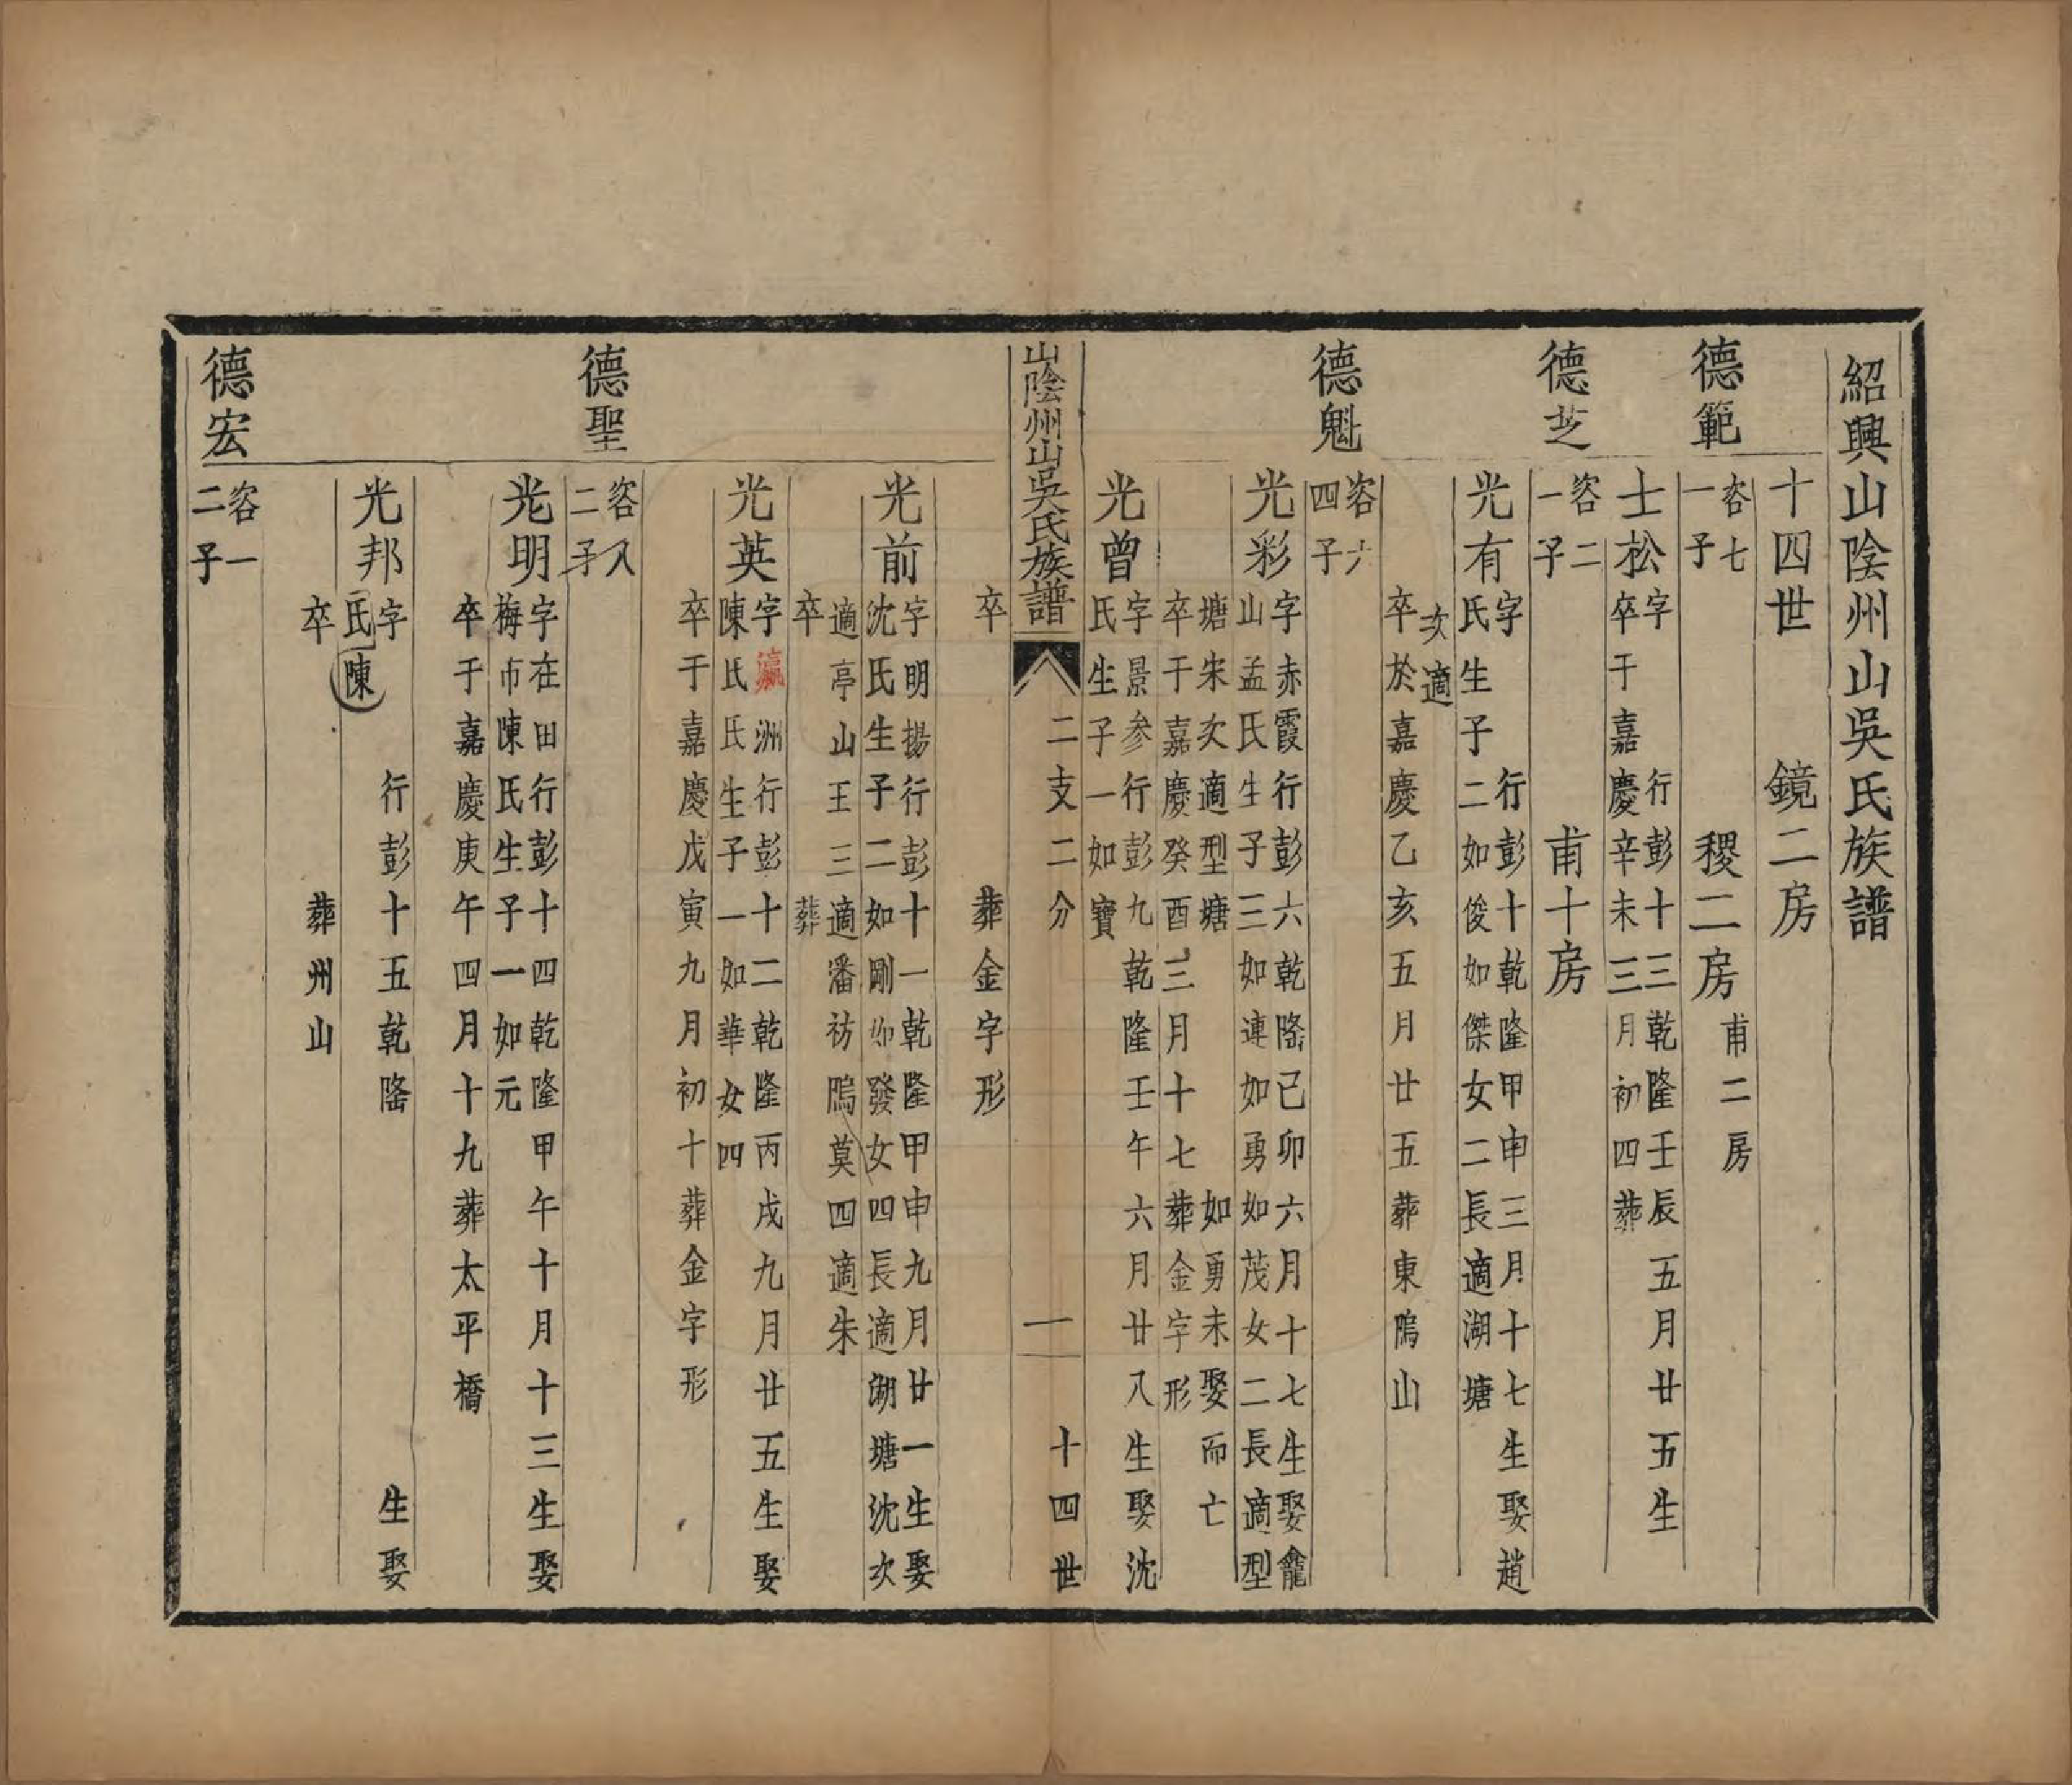 紹興山陰州山吳氏族譜
十四世　鏡二房
稷二房　甫二房
德範
容七
一子
士松
字　行彭十三乾隆壬辰五月廿五生
卒于嘉慶辛未三月初四葬
甫十房
德芝
容二
一子
光有
字　行彭十乾隆甲申三月十七生娶趙
氏生子二如俊如傑女二長適湖塘
次適
卒於嘉慶乙亥五月廿五葬東隖山
德魁
容六
四子
光彩
字赤霞行彭六乾隆己卯六月十七生娶龕
山孟氏生子三如連如勇如茂女二長適型
塘宋次適型塘　如勇未娶而亡
卒于嘉慶癸酉三月十七葬金字形
光曾
字景参行彭九乾隆壬午六月廿八生娶沈
氏生子一如寶
山陰州山吳氏族譜　二支二分　一　十四世
卒　葬金字形
光前
字明揚行彭十一乾隆甲申九月廿一生娶
沈氏生子二如剛如發女四長適湖塘沈次
適亭山王三適潘祊隖莫四適朱
卒　葬
光英
字瀛洲行彭十二乾隆丙戌九月廿五生娶
陳氏氏生子一如華女四
卒于嘉慶戊寅九月初十葬金字形
德聖
容八
二子
光明
字在田行彭十四乾隆甲午十月十三生娶
梅市陳氏生子一如元
卒于嘉慶庚午四月十九葬太平橋
光邦
字　行彭十五乾隆　生娶
氏陳
卒　葬州山
德宏
容一
二子